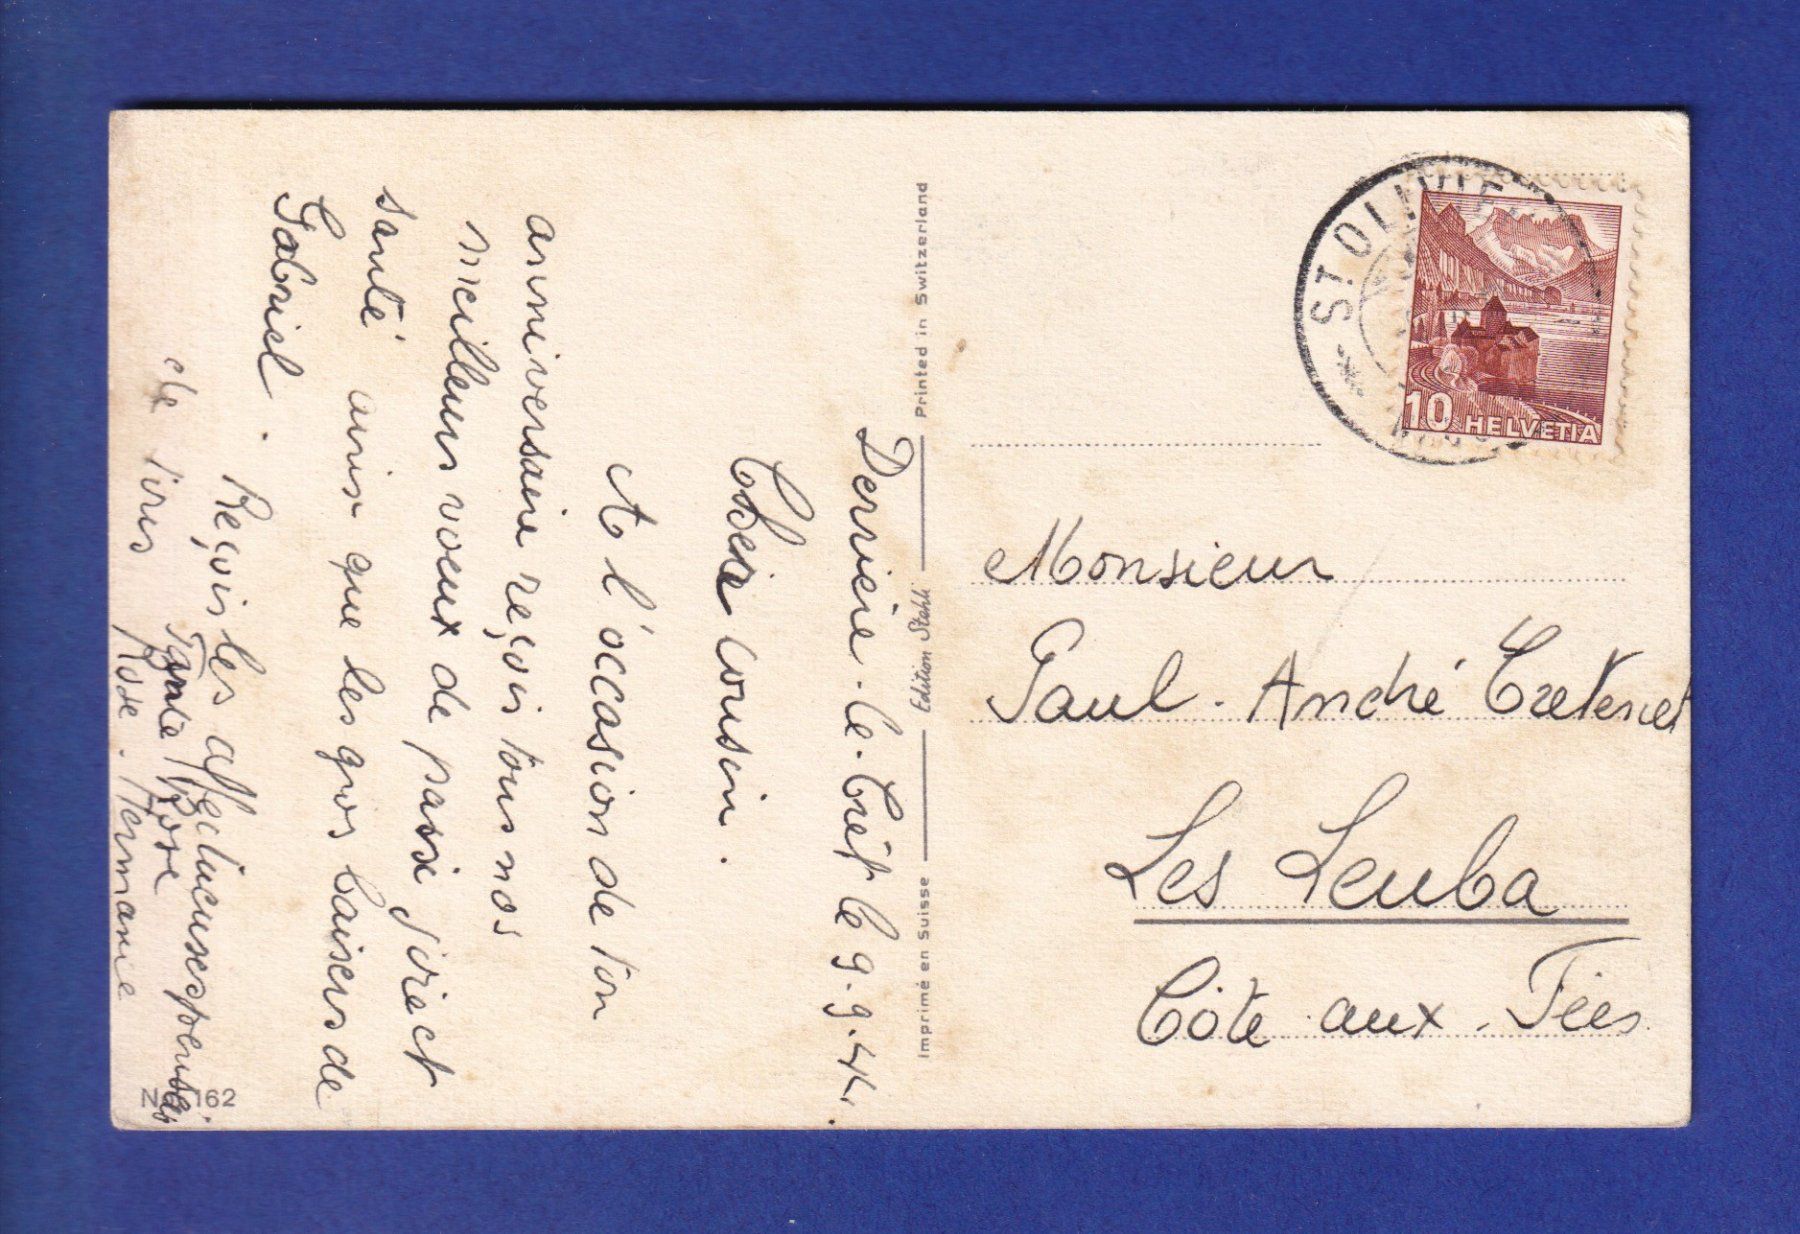 Derrière-le-Crêt le 9.9.44.
Cher cousin.
A l'occasion de ton
anniversaire reçois tous nos
meilleurs voeux de passe
santé ainsi que les gros baisers de
Gabriel.
Reçois les affectueuses pensées
de tous Tante Rose
Rose. Hermanie
No 162
Imprimé en Suisse Edition Stehli Printed in Switzerland
ST OLIVIE
10 HELVETIA
Monsieur
Paul-André Cretenet
Les Leuba
Côte aux Fées